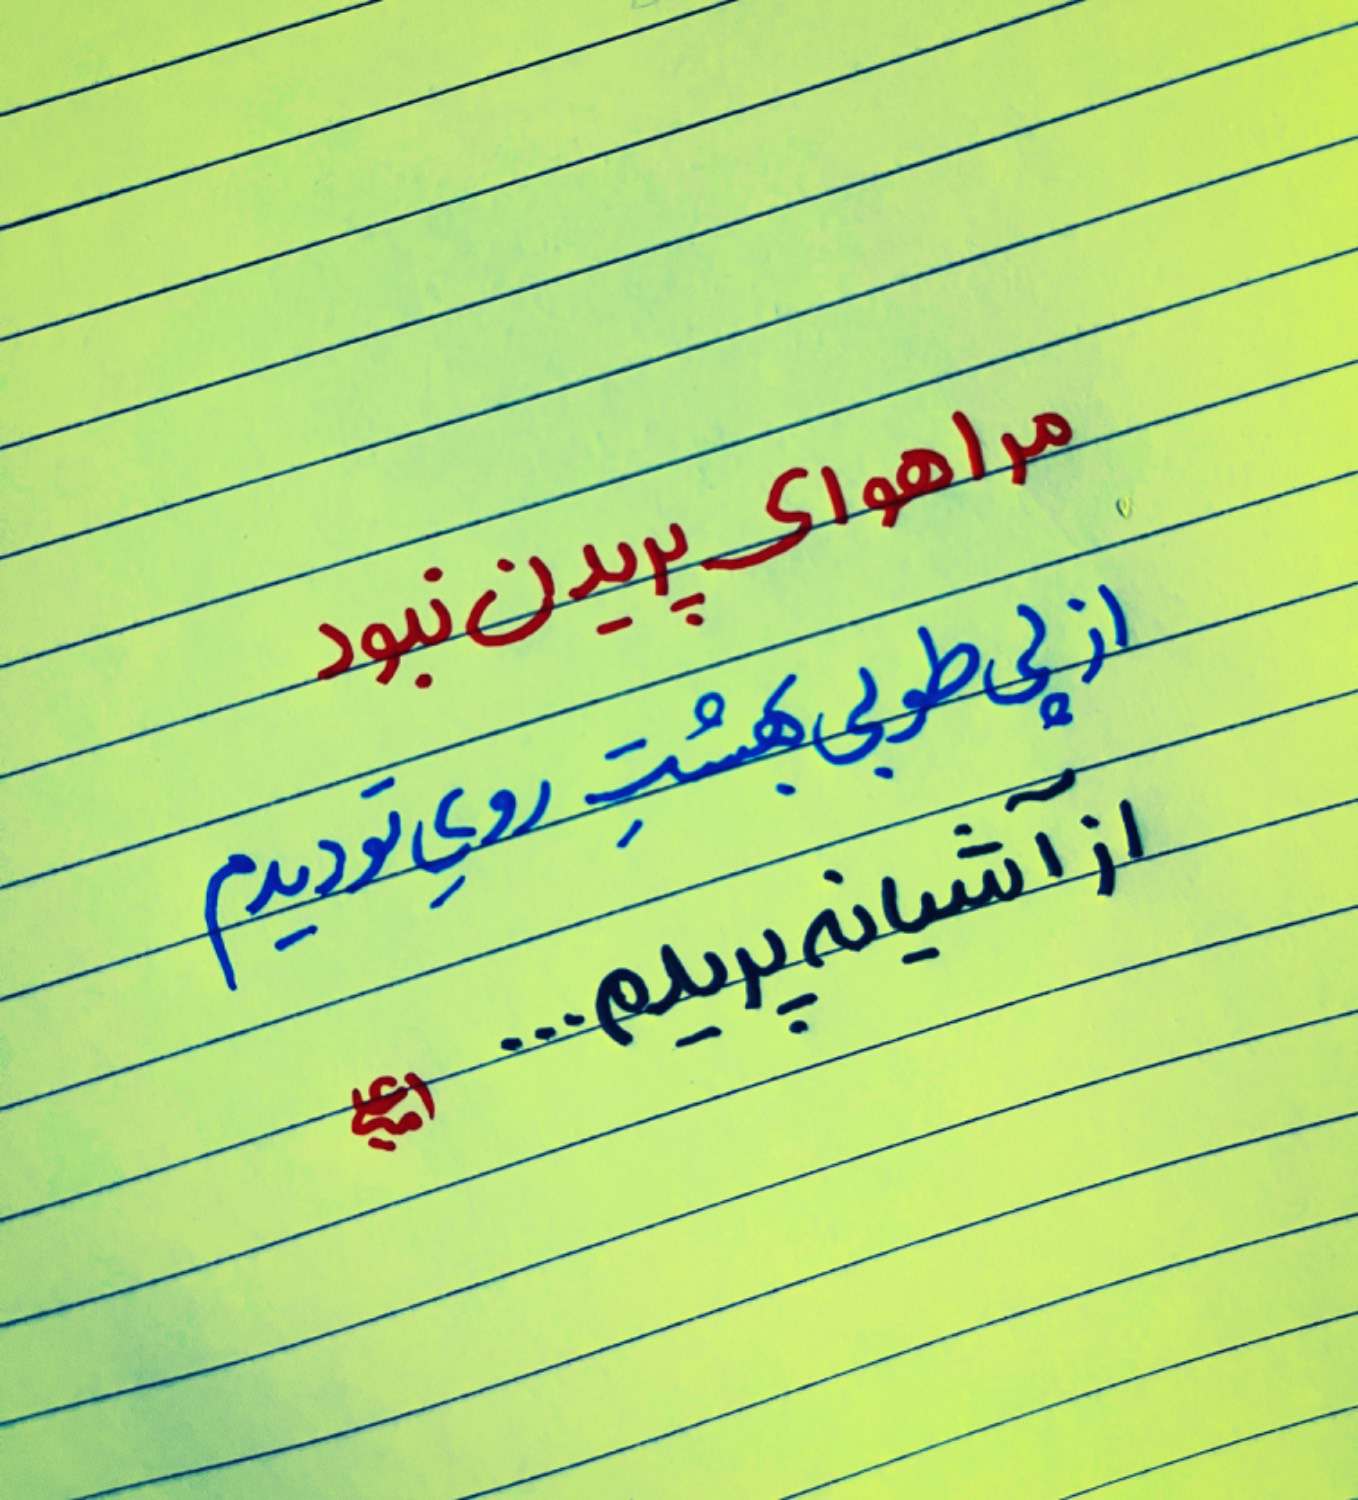 مرا هوای پریدن نبود
از پی طوبی بهشتِ رویِ تو دیدم
از آشیانه پریدم...